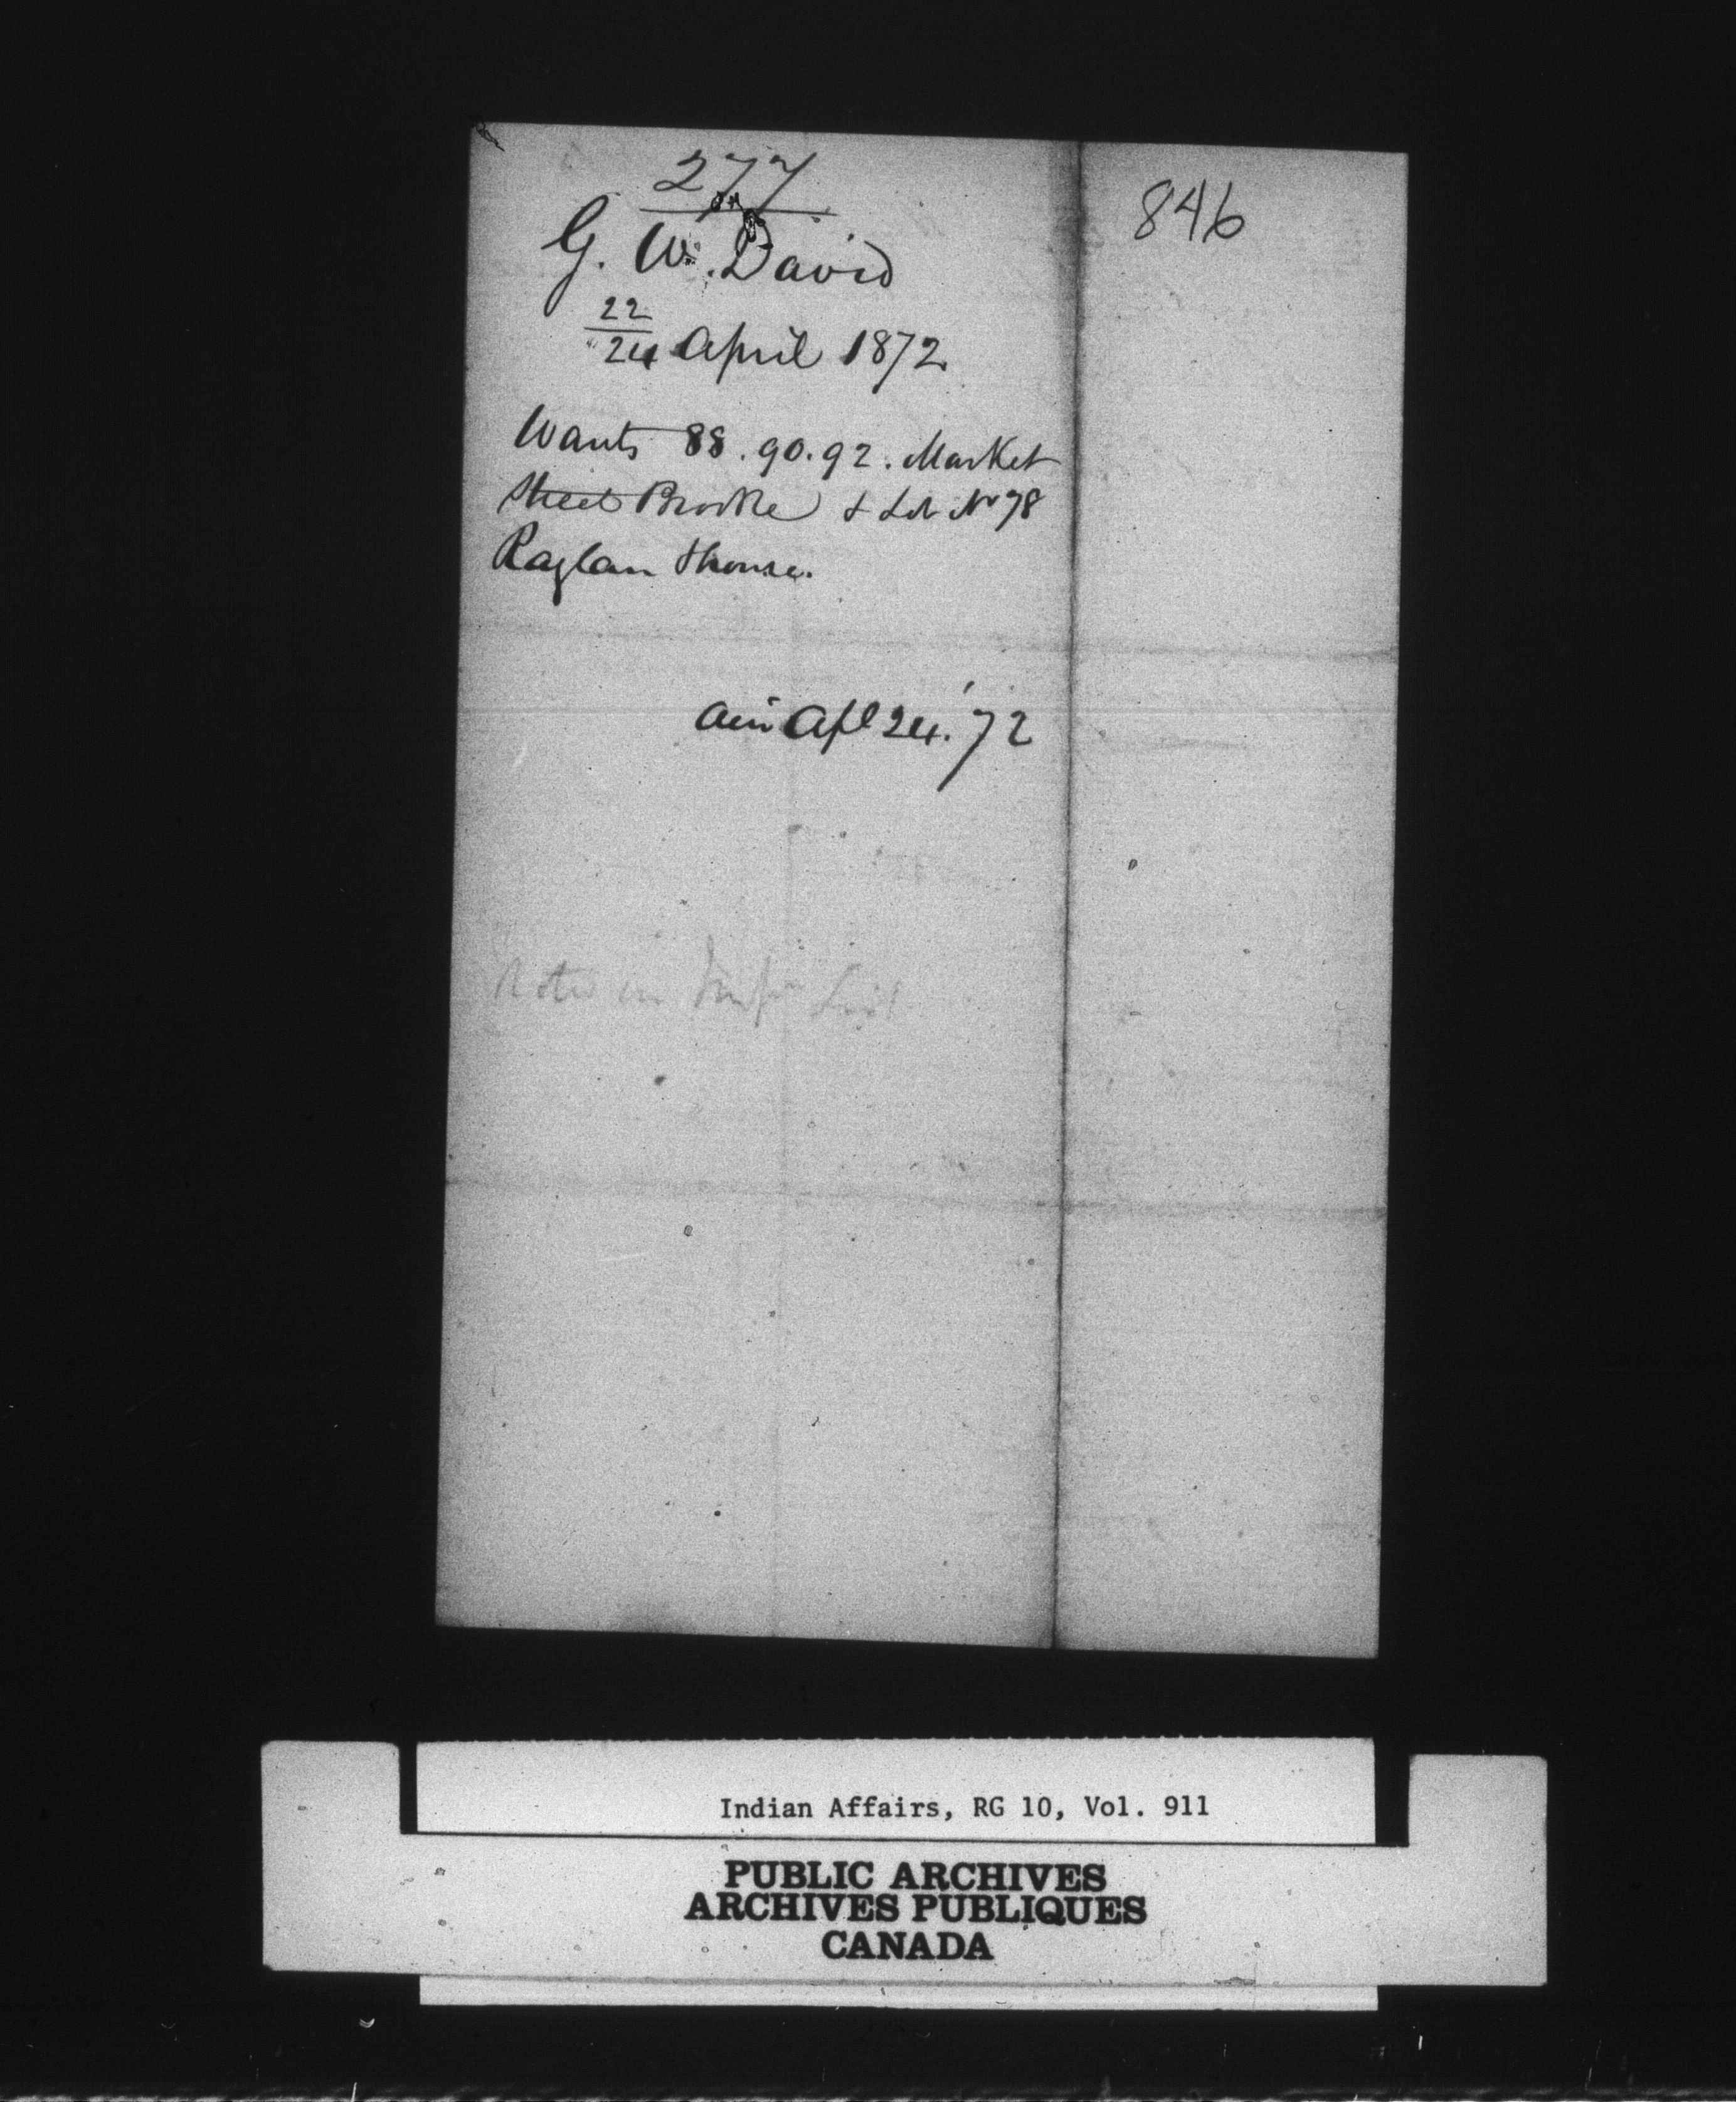 277
846
G. W. David
22
24 April 1872
Wants 88. 90. 92. Market
Street Brooke & Lot No 78
Raglan
Apl 24. '72
Indian Affairs, RG 10, Vol. 911
PUBLIC ARCHIVES
ARCHIVES PUBLIQUES
CANADA